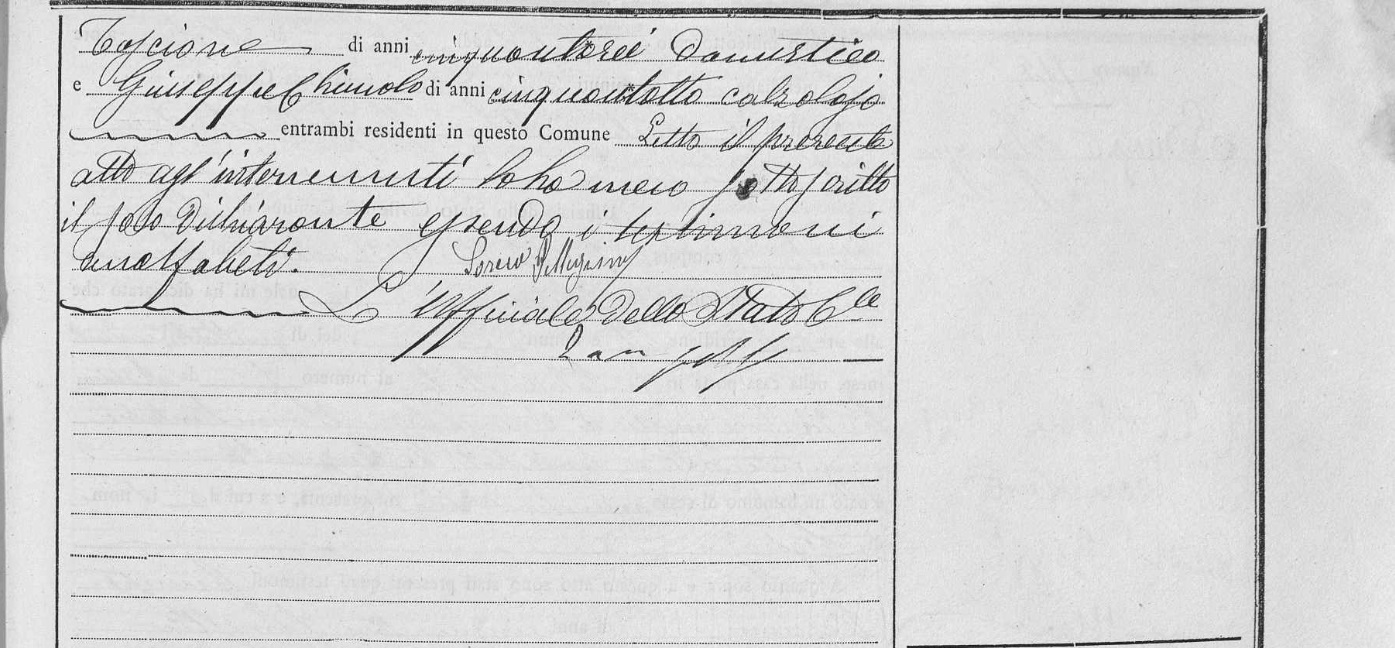 Toscione di anni cinquantasei domestico
e Giuseppe Chiuolo di anni cinquantotto calzolajo
entrambi residenti in questo Comune Letto il presente
atto agl'intervenuti lo ha meco sottoscritto
il solo dichiarante essendo i testimoni
analfabeti. Pellegrino
L'Officiale dello Stato Cle